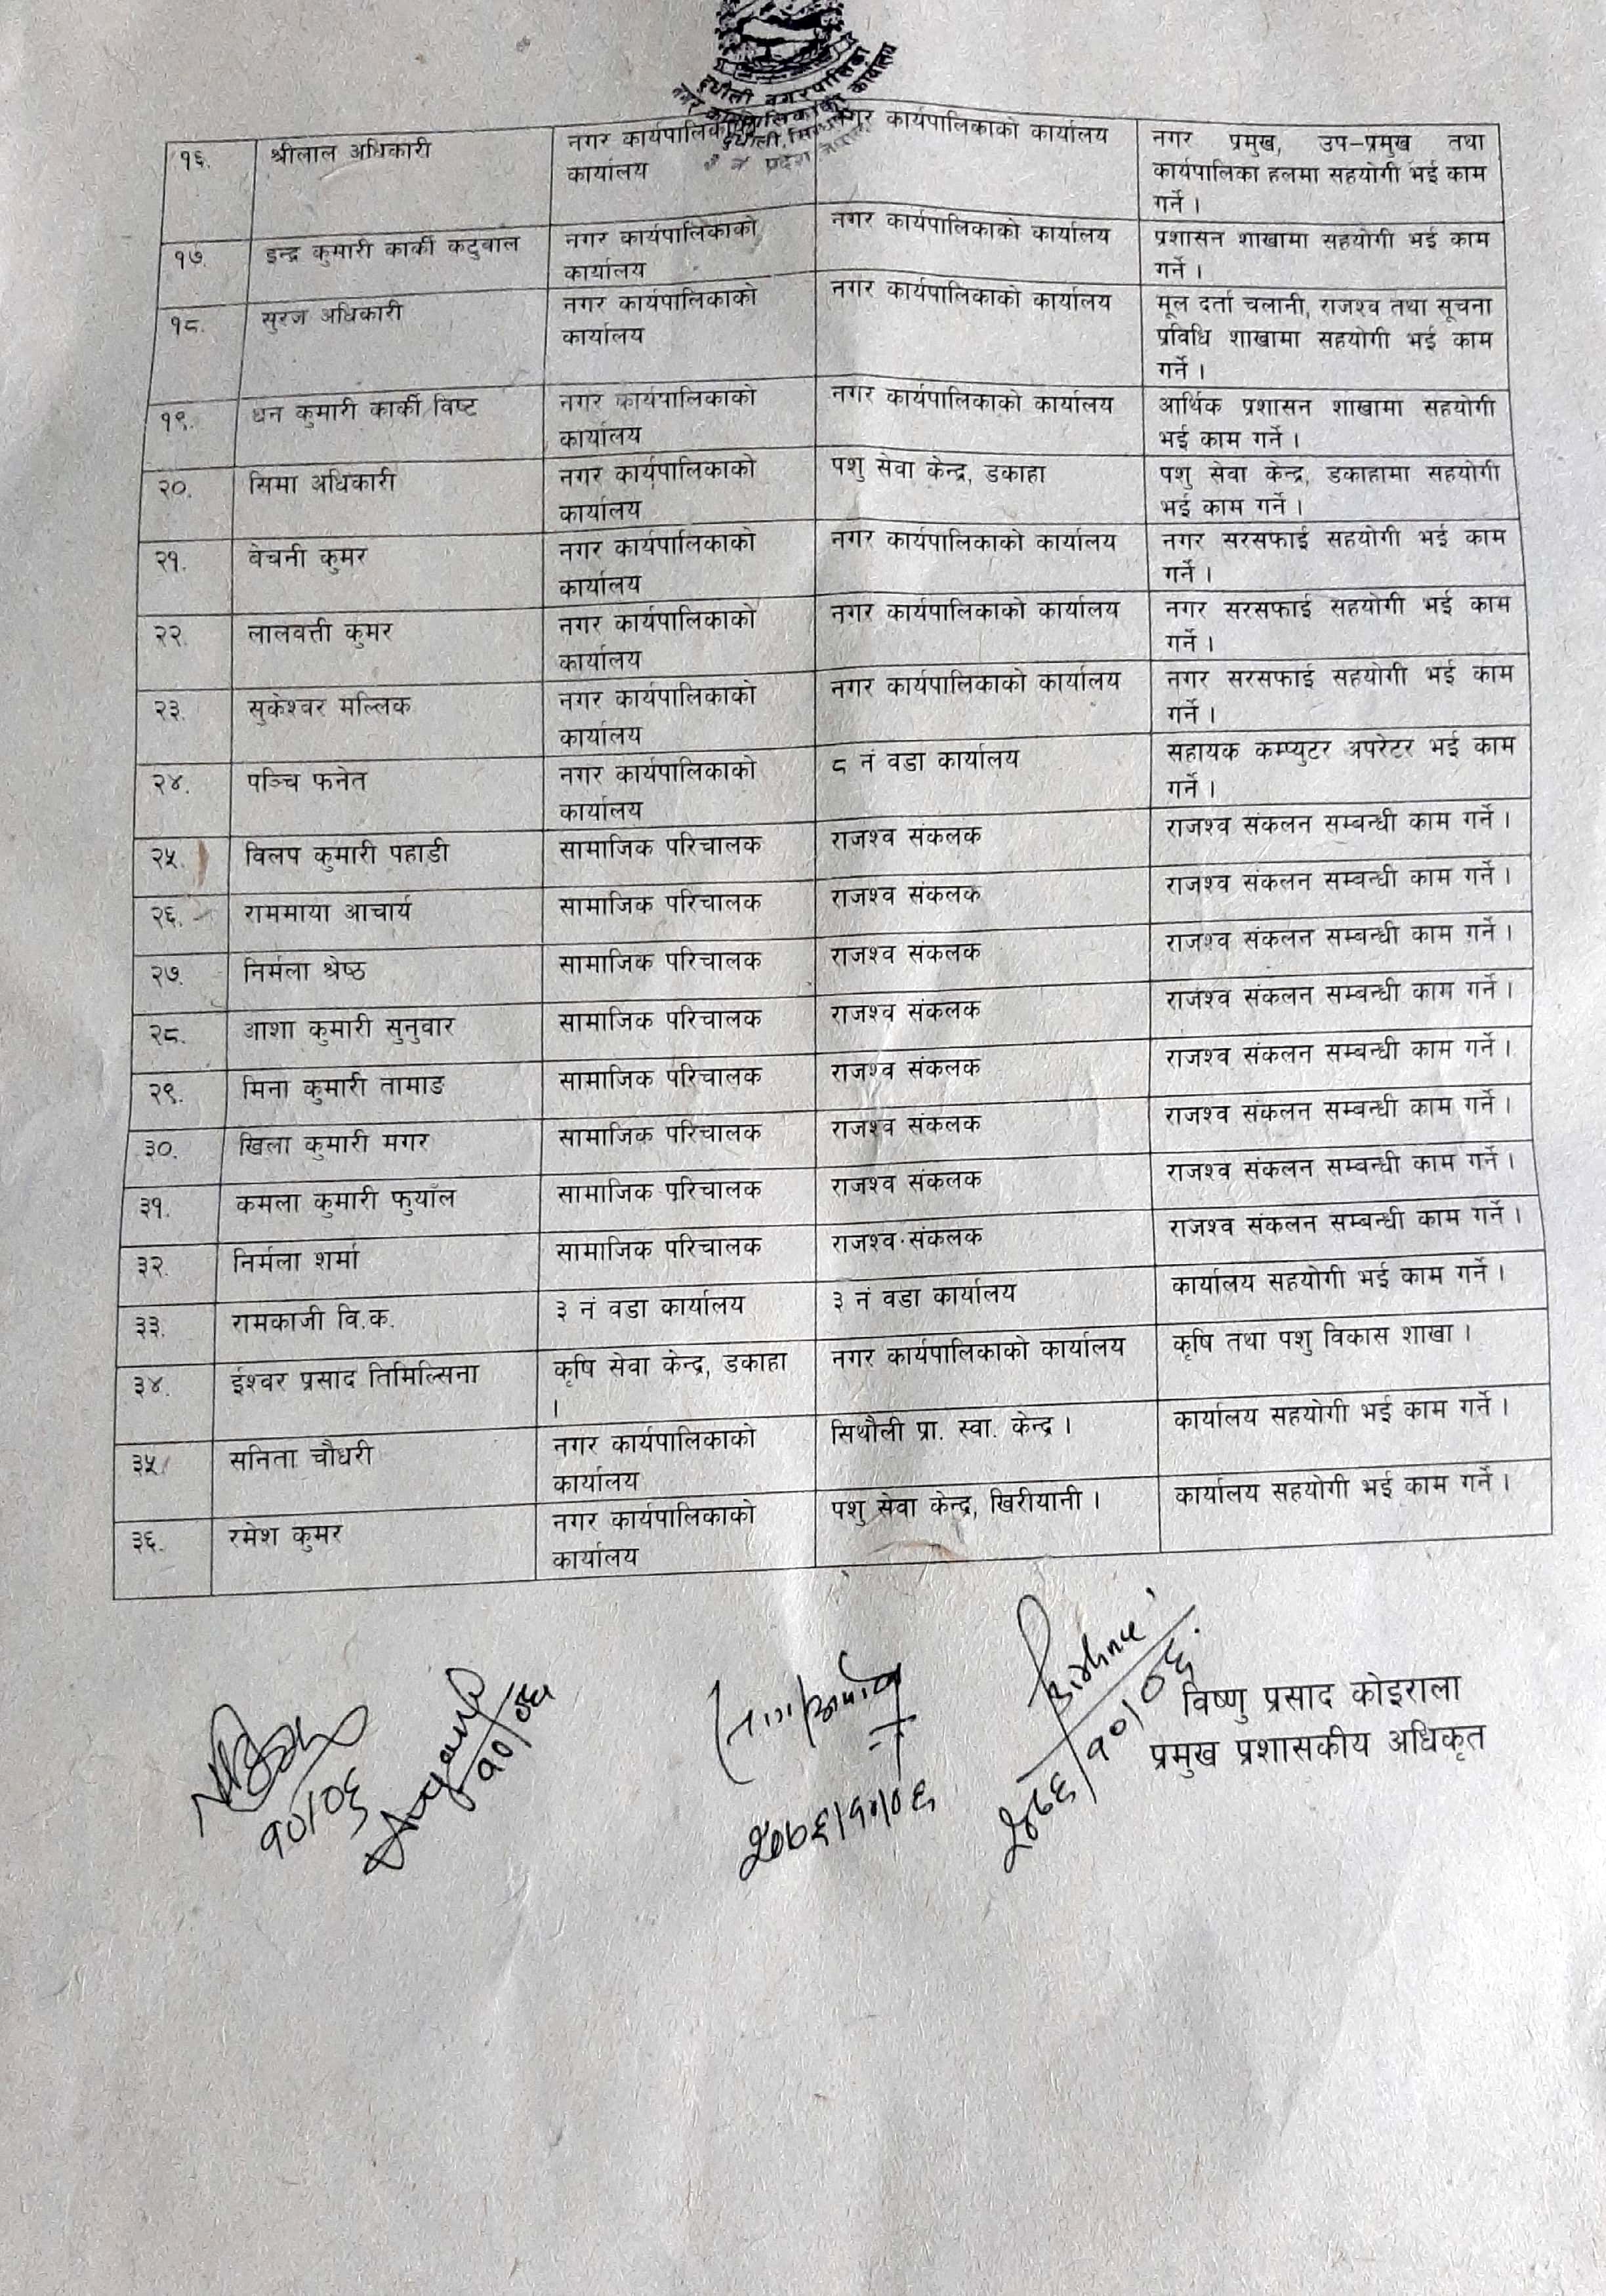 दुधौली नगरपालिका
नगर कार्यपालिकाको कार्यालय
दुधौली, सिन्धुली
१६. श्रीलाल अधिकारी नगर कार्यपालिकाको नगर कार्यपालिकाको कार्यालय नगर प्रमुख, उप-प्रमुख तथा
कार्यालय कार्यपालिका हलमा सहयोगी भई काम
गर्ने ।
१७. इन्द्र कुमारी कार्की कटुवाल नगर कार्यपालिकाको नगर कार्यपालिकाको कार्यालय प्रशासन शाखामा सहयोगी भई काम
कार्यालय गर्ने ।
१८. सुरज अधिकारी नगर कार्यपालिकाको नगर कार्यपालिकाको कार्यालय मूल दर्ता चलानी, राजश्व तथा सूचना
कार्यालय प्रविधि शाखामा सहयोगी भई काम
गर्ने ।
१९. धन कुमारी कार्की विष्ट नगर कार्यपालिकाको नगर कार्यपालिकाको कार्यालय आर्थिक प्रशासन शाखामा सहयोगी
कार्यालय भई काम गर्ने ।
२०. सिमा अधिकारी नगर कार्यपालिकाको पशु सेवा केन्द्र, डकाहा पशु सेवा केन्द्र, डकाहामा सहयोगी
कार्यालय भई काम गर्ने ।
२१. वेचनी कुमर नगर कार्यपालिकाको नगर कार्यपालिकाको कार्यालय नगर सरसफाई सहयोगी भई काम
कार्यालय गर्ने ।
२२. लालवत्ती कुमर नगर कार्यपालिकाको नगर कार्यपालिकाको कार्यालय नगर सरसफाई सहयोगी भई काम
कार्यालय गर्ने ।
२३. सुकेश्वर मल्लिक नगर कार्यपालिकाको नगर कार्यपालिकाको कार्यालय नगर सरसफाई सहयोगी भई काम
कार्यालय गर्ने ।
२४. पञ्चि फनेत नगर कार्यपालिकाको ८ नं वडा कार्यालय सहायक कम्प्युटर अपरेटर भई काम
कार्यालय गर्ने ।
२५. विलप कुमारी पहाडी सामाजिक परिचालक राजश्व संकलक राजश्व संकलन सम्बन्धी काम गर्ने ।
२६. राममाया आचार्य सामाजिक परिचालक राजश्व संकलक राजश्व संकलन सम्बन्धी काम गर्ने ।
२७. निर्मला श्रेष्ठ सामाजिक परिचालक राजश्व संकलक राजश्व संकलन सम्बन्धी काम गर्ने ।
२८. आशा कुमारी सुनुवार सामाजिक परिचालक राजश्व संकलक राजश्व संकलन सम्बन्धी काम गर्ने ।
२९. मिना कुमारी तामाङ सामाजिक परिचालक राजश्व संकलक राजश्व संकलन सम्बन्धी काम गर्ने ।
३०. खिला कुमारी मगर सामाजिक परिचालक राजश्व संकलक राजश्व संकलन सम्बन्धी काम गर्ने ।
३१. कमला कुमारी फुयाँल सामाजिक परिचालक राजश्व संकलक राजश्व संकलन सम्बन्धी काम गर्ने ।
३२. निर्मला शर्मा सामाजिक परिचालक राजश्व संकलक राजश्व संकलन सम्बन्धी काम गर्ने ।
३३. रामकाजी वि.क. ३ नं वडा कार्यालय ३ नं वडा कार्यालय कार्यालय सहयोगी भई काम गर्ने ।
३४. ईश्वर प्रसाद तिमिल्सिना कृषि सेवा केन्द्र, डकाहा नगर कार्यपालिकाको कार्यालय कृषि तथा पशु विकास शाखा ।
।
३५. सनिता चौधरी नगर कार्यपालिकाको सिथौली प्रा. स्वा. केन्द्र । कार्यालय सहयोगी भई काम गर्ने ।
कार्यालय
३६. रमेश कुमर नगर कार्यपालिकाको पशु सेवा केन्द्र, खिरीयानी । कार्यालय सहयोगी भई काम गर्ने ।
कार्यालय
विष्णु प्रसाद कोइराला
प्रमुख प्रशासकीय अधिकृत
१०/०६
१०/०६
२०७६/१०/०६
२०७६/१०/०६